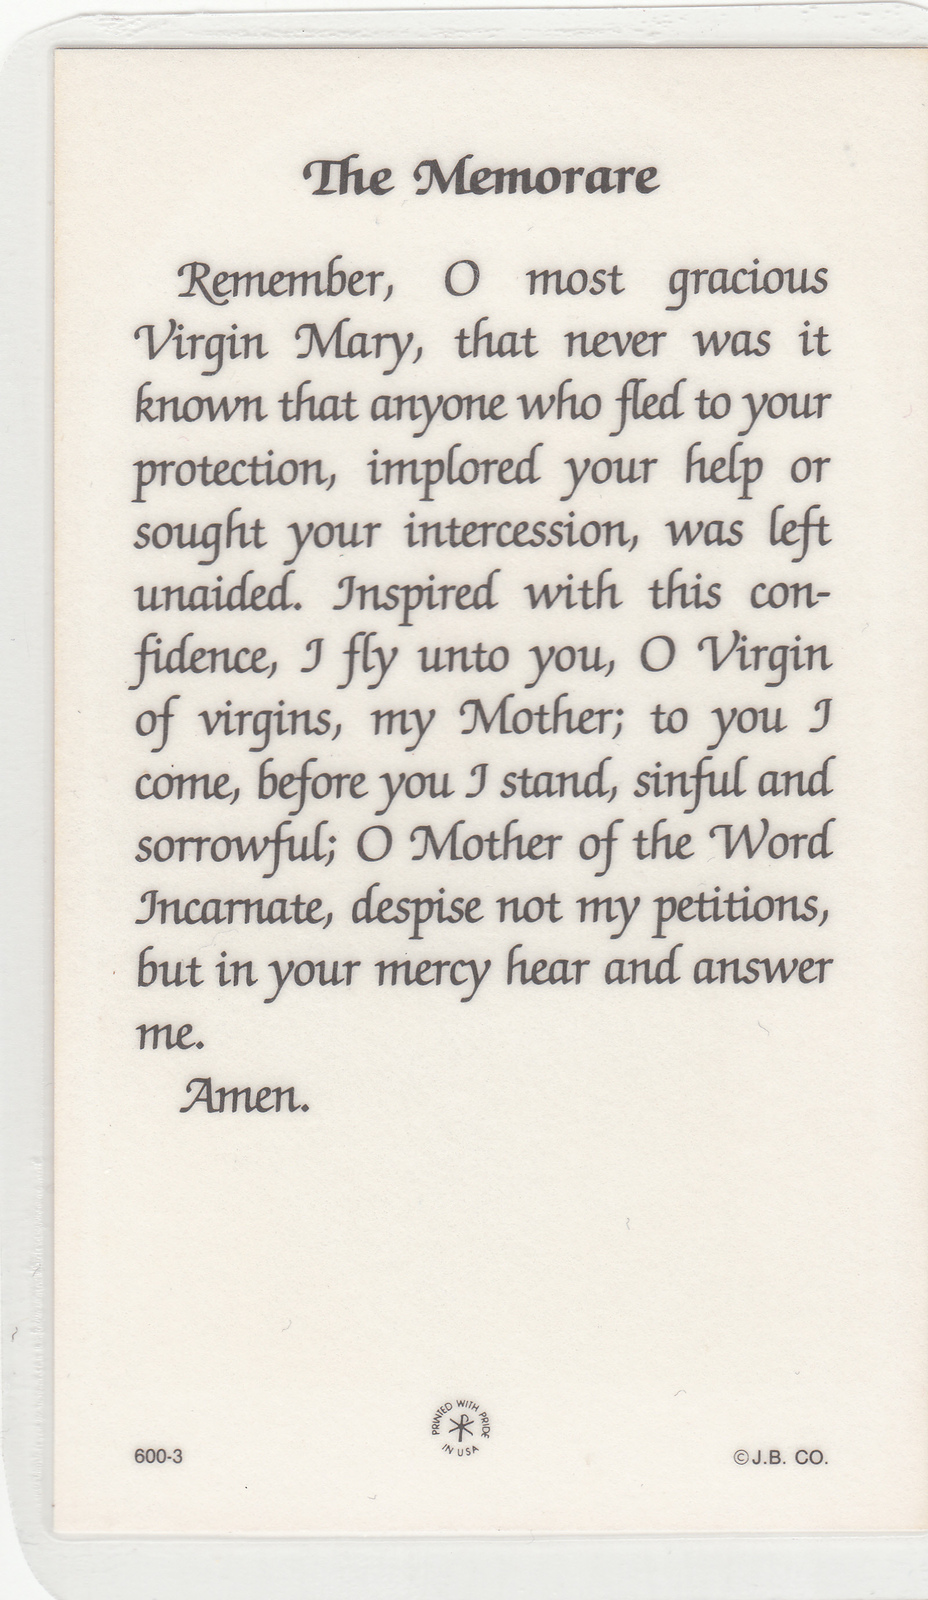 The Memorare
Remember, O most gracious
Virgin Mary, that never was it
known that anyone who fled to your
protection, implored your help or
sought your intercession, was left
unaided. Inspired with this con-
fidence, I fly unto you, O Virgin
of virgins, my Mother; to you I
come, before you I stand, sinful and
sorrowful; O Mother of the Word
Incarnate, despise not my petitions,
but in your mercy hear and answer
me.
Amen.
PRINTED WITH PRIDE
IN USA
600-3
©J.B. CO.